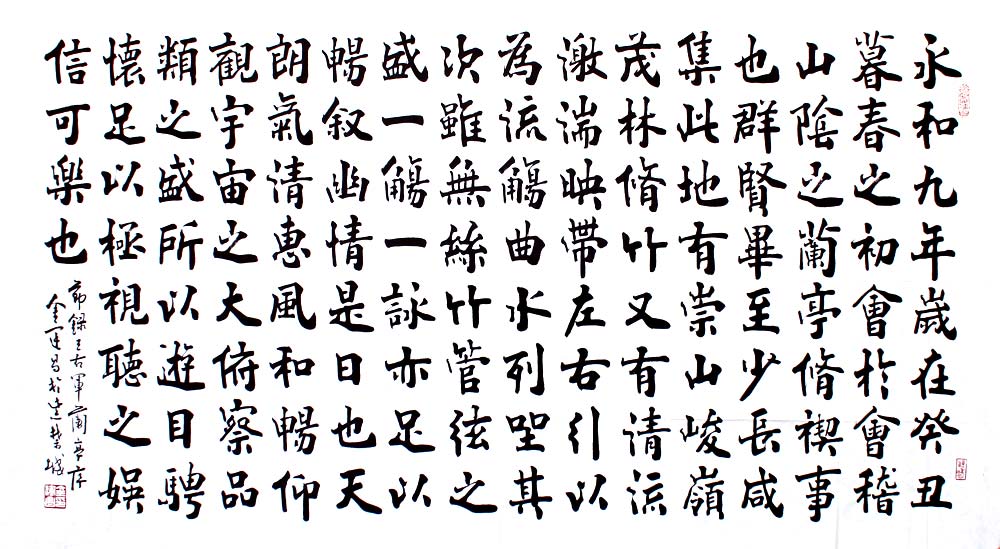 永和九年歲在癸丑
暮春之初會於會稽
山陰之蘭亭脩禊事
也群賢畢至少長咸
集此地有崇山峻嶺
茂林脩竹又有清流
激湍映帶左右引以
為流觴曲水列坐其
次雖無絲竹管弦之
盛一觴一詠亦足以
暢叙幽情是日也天
朗氣清惠風和暢仰
觀宇宙之大俯察品
類之盛所以遊目騁
懷足以極視聽之娛
信可樂也
節錄王右軍蘭亭序
金運昌